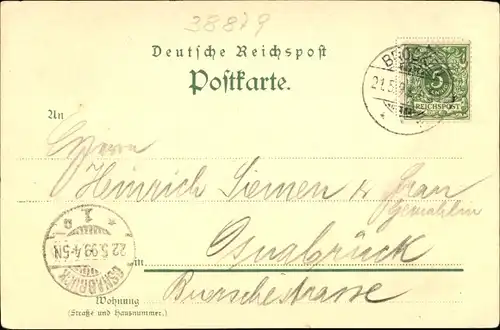 38879
Deutsche Reichspost
Postkarte.
BROCK
21.5.9
5
REICHSPOST
An
Herrn
Heinrich Siemen & Frau
Gemahlin
in Osnabrück
Buerschestrasse
OSNABRÜCK
22.5.99.4-5N.
* 1. a
Wohnung
(Straße und Hausnummer.)